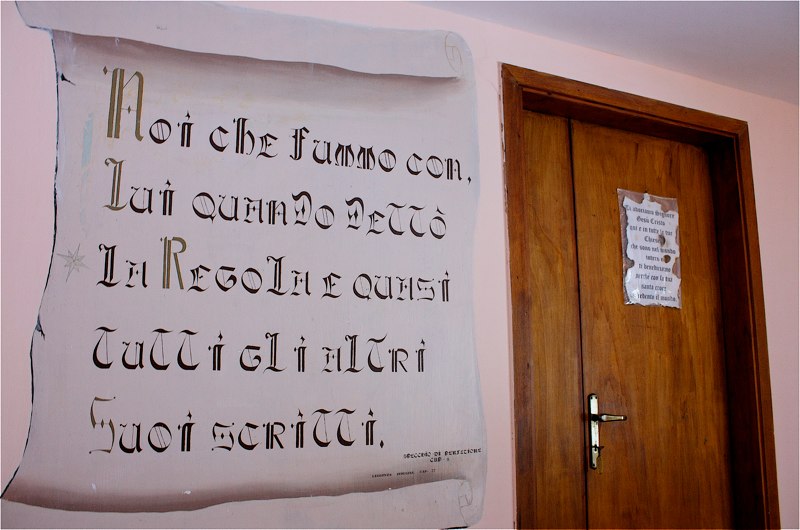 Noi che fummo con,
Lui quando dettò
la Regola e quasi
tutti gli altri
Suoi scritti.
SPECCHIO DI PERFEZIONE
Ti adoriamo Signore
Gesù Cristo
qui e in tutte le tue
Chiese
che sono nel mondo
intero e
ti benediciamo
perché con la tua
santa croce
redento il mondo.